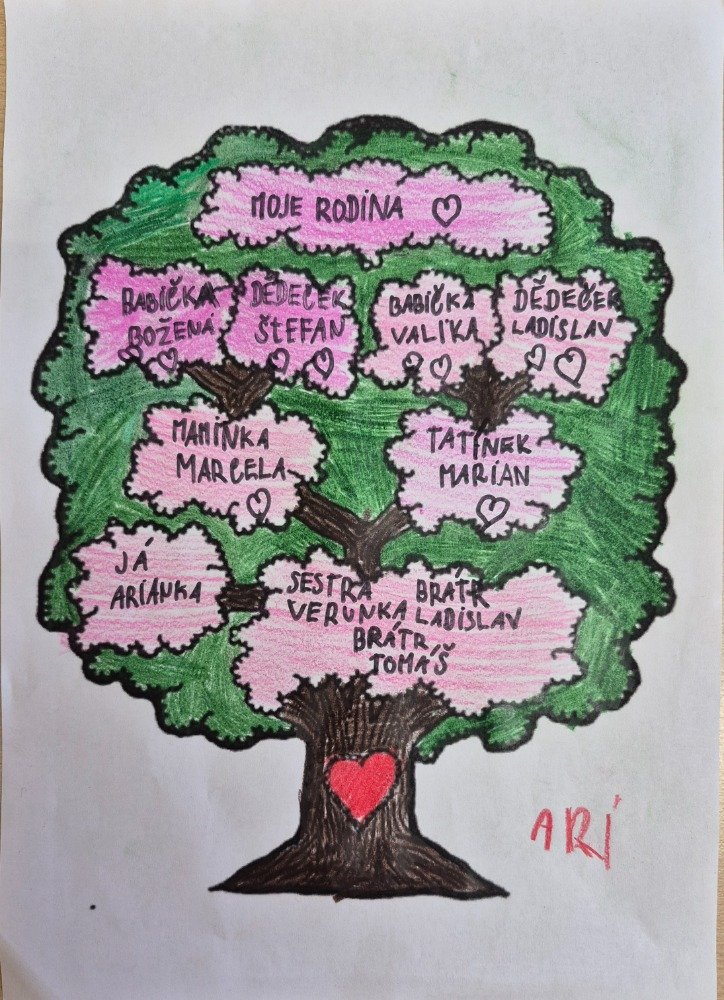 MOJE RODINA
BABIČKA
BOŽENÁ
DĚDEČEK
ŠTEFAN
BABIČKA
VALIKA
DĚDEČEK
LADISLAV
MAMINKA
MARCELA
TATÍNEK
MARIAN
JÁ
ARIANKA
SESTRA BRÁTR
VERUNKA LADISLAV
BRÁTR
TOMÁŠ
ARI